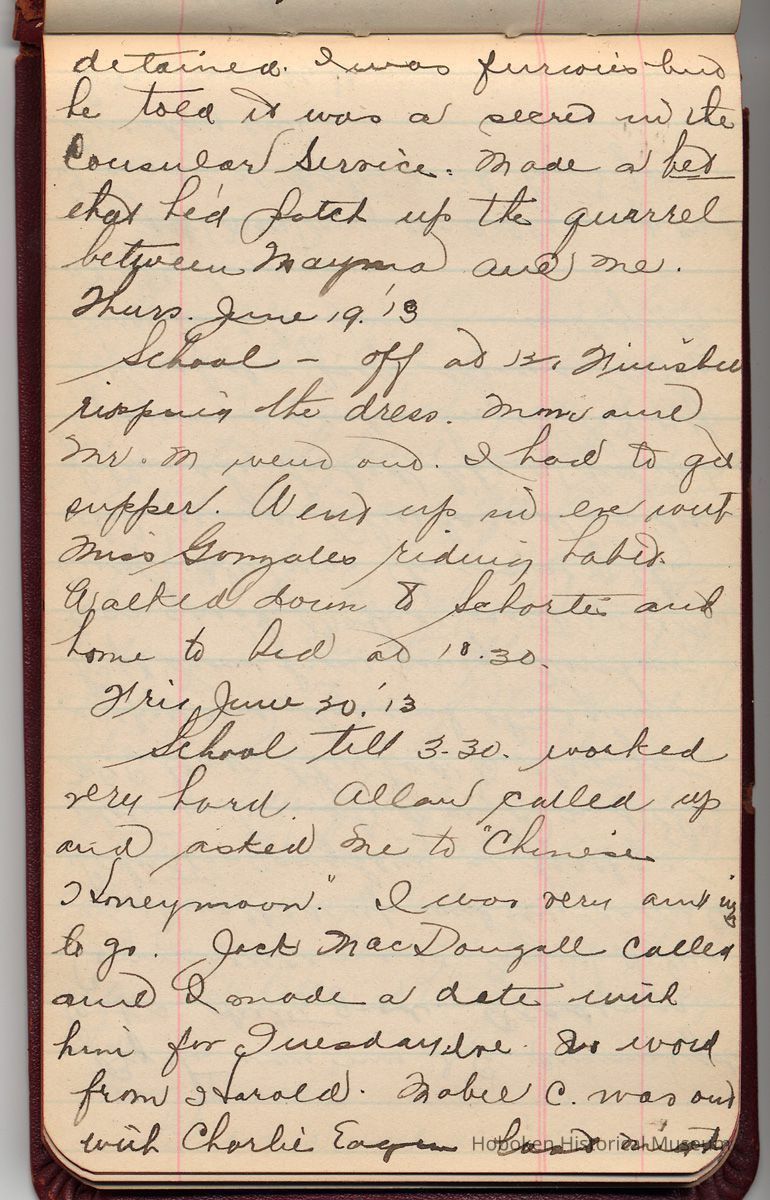 detained. I was furious but
he told it was a secret in the
Consular Service. Made a bet
that he'd patch up the quarrel
between Mayma and me.
Thurs. June 19. '13
School - off at 12. Finished
ripping the dress. Mom and
Mr. M went out. I had to get
supper. Went up in eve with
Miss Gonzales riding habit.
Walked down to Schortes and
home to bed at 10.30.
Fri June 20. '13
School till 3-30. worked
very hard. Allan called up
and asked me to "Chinese
Honeymoon." I was very
to go. Jack MacDougall called
and I made a date with
him for Tuesday eve. No word
from Harold. Mabel C. was out
with Charlie Eagen
Hoboken Historical Museum